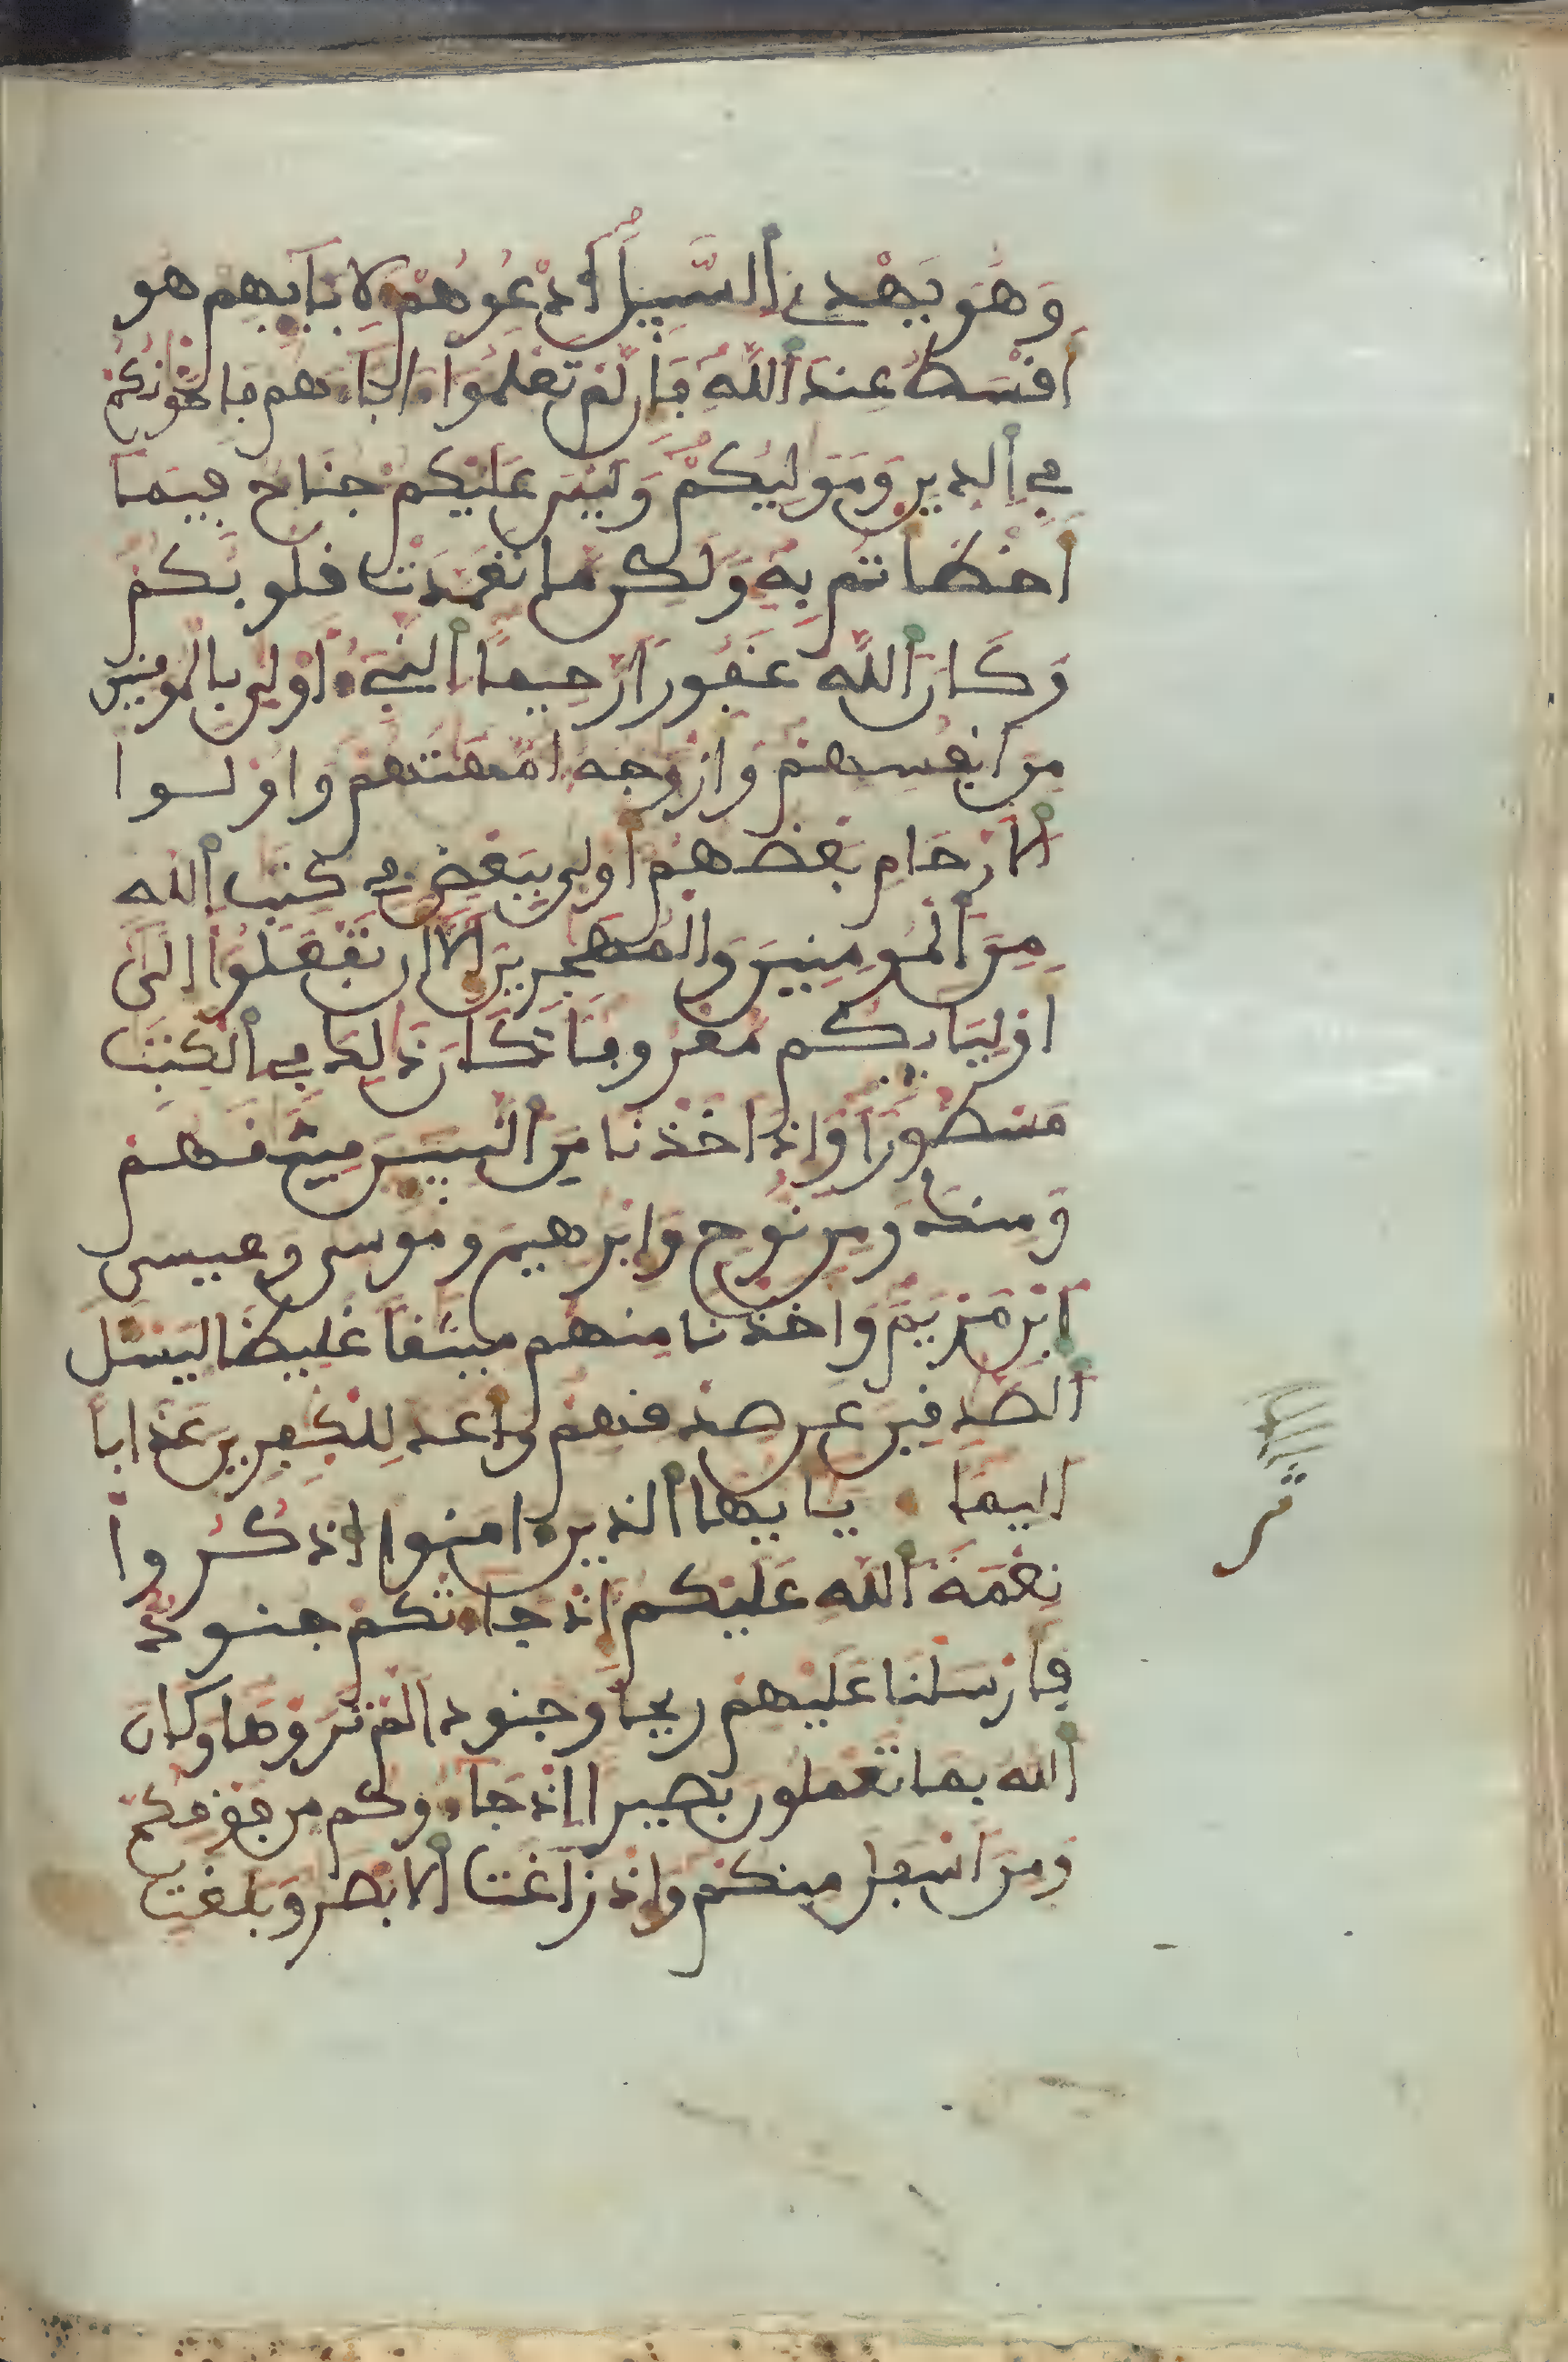 وَهُوَ يَهْدِے اِ۬لسَّبِيلَ اَ۟دْعُوهُمْ لِأَبَآئِهِمْ هُوَ
أَقْسَطُ عِندَ اَ۬للَّهِ فَإِن لَّمْ تَعْلَمُوٓاْ ءَابَآءَهُمْ فَإِخْوَٰنُكُمْ
فِے اِ۬لدِّينِ وَمَوَٰلِيكُمْ وَلَيْسَ عَلَيْكُمْ جُنَاحٌ فِيمَآ
أَخْطَأْتُم بِهِۦ وَلَٰكِن مَّا تَعَمَّدَتْ قُلُوبُكُمْ
وَكَانَ اَ۬للَّهُ غَفُوراً رَّحِيماً اِ۬لنَّبِےٓءُ أَوْلَىٰ بِالْمُومِنِينَ
مِنَ اَنفُسِهِمْ وَأَزْوَٰجُهُۥٓ أُمَّهَٰتُهُمْ وَأُوْلُواْ
اُ۬لَارْحَامِ بَعْضُهُمُۥٓ أَوْلَىٰ بِبَعْضٍ فِے كِتَٰبِ اِ۬للَّهِ
مِنَ اَ۬لْمُومِنِينَ وَالْمُهَٰجِرِينَ إِلَّآ أَن تَفْعَلُوٓاْ إِلَىٰٓ
أَوْلِيَآئِكُم مَّعْرُوفاً كَانَ ذَٰلِكَ فِے اِ۬لْكِتَٰبِ
مَسْطُوراً وَإِذَ اَخَذْنَا مِنَ اَ۬لنَّبِيٓـِٕينَ مِيثَٰقَهُمْ
وَمِنكَ وَمِن نُّوحٍ وَإِبْرَٰهِيمَ وَمُوسَىٰ وَعِيسَى
اَ۪بْنِ مَرْيَمَ وَأَخَذْنَا مِنْهُم مِّيثَٰقاً غَلِيظاً لِّيَسْـَٔلَ
اَ۬لصَّٰدِقِينَ عَن صِدْقِهِمْ وَأَعَدَّ لِلْكٰ۪فِرِينَ عَذَاباً
اَلِيماً يَٰٓأَيُّهَا اَ۬لذِينَ ءَامَنُواْ اُ۟ذْكُرُواْ
نِعْمَةَ اَ۬للَّهِ عَلَيْكُمُۥٓ إِذْ جَآءَتْكُمْ جُنُودٌ
فَأَرْسَلْنَا عَلَيْهِمْ رِيحاً وَجُنُوداً لَّمْ تَرَوْهَا وَكَانَ
اَ۬للَّهُ بِمَا تَعْمَلُونَ بَصِيراً اِذْ جَآءُوكُم مِّن فَوْقِكُمْ
وَمِنَ اَسْفَلَ مِنكُمْ وَإِذْ زَاغَتِ اِ۬لَابْصَٰرُ وَبَلَغَتِ